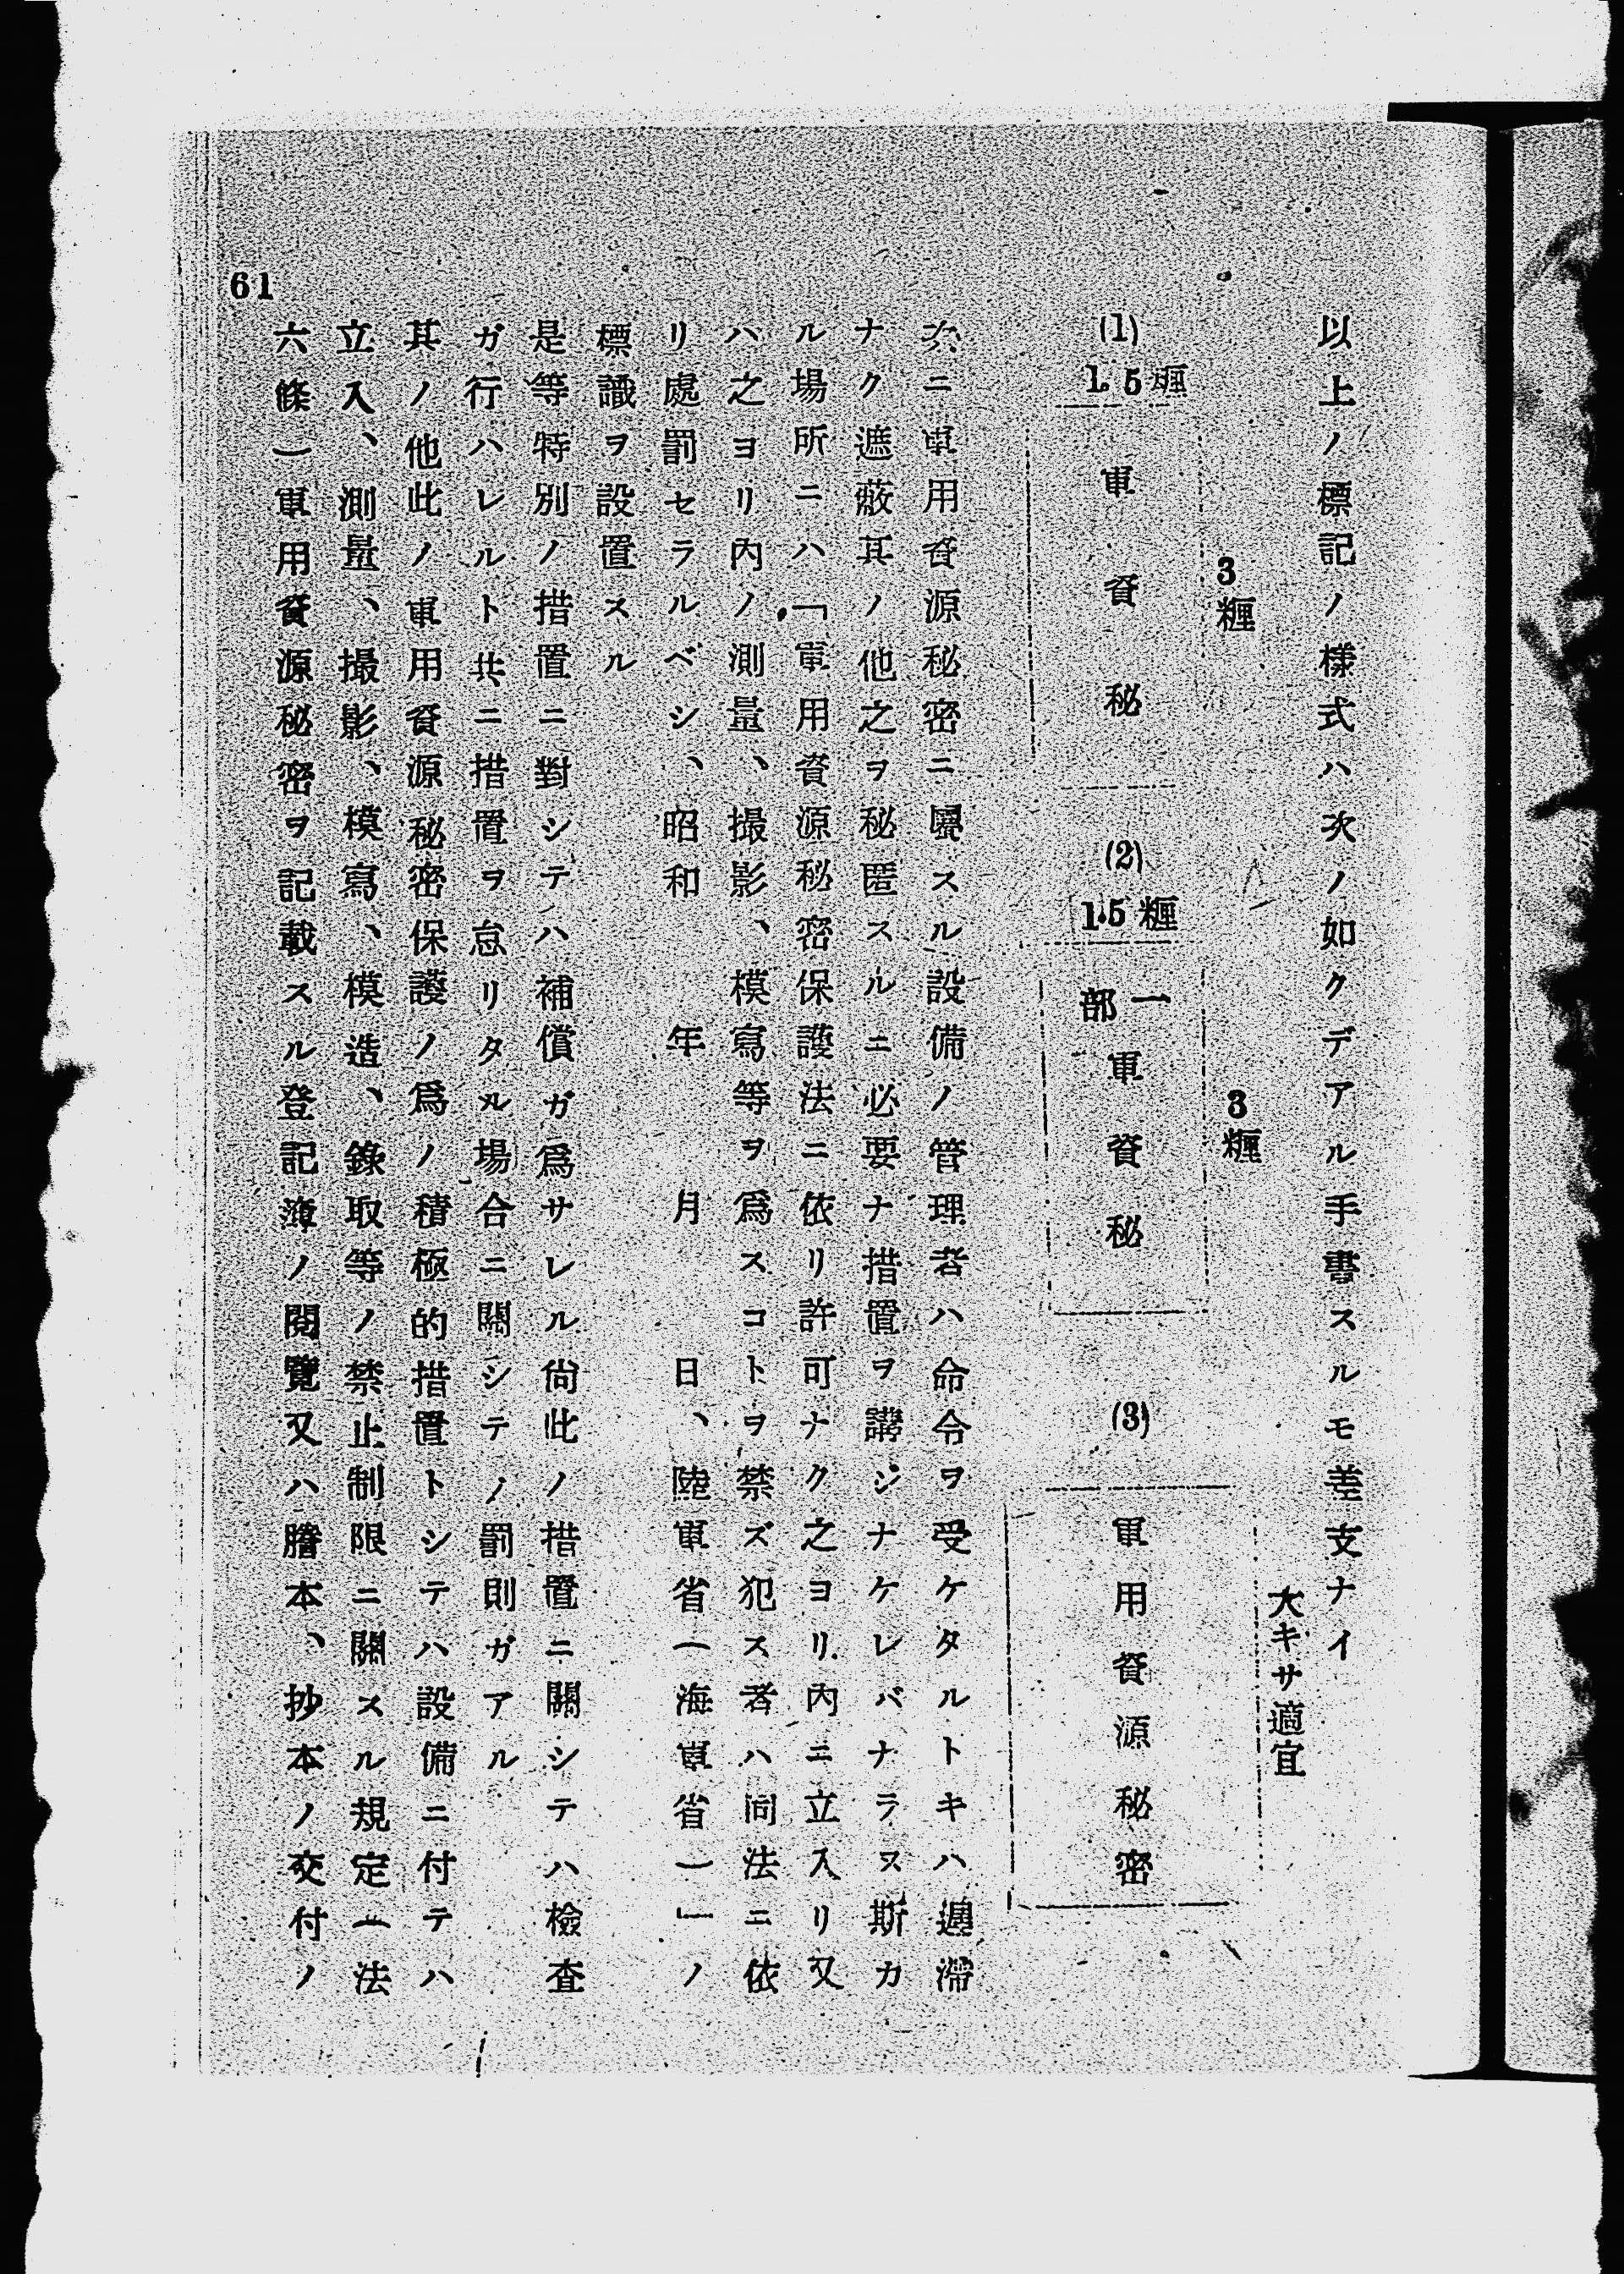 以上ノ標記ノ様式ハ次ノ如クデアル手書スルモ差支ナイ
(1)
1.5糎
3糎
軍資秘
(2)
1.5糎
3糎
一部軍資秘
(3)
大キサ適宜
軍用資源秘密
次ニ軍用資源秘密ニ屬スル設備ノ管理者ハ命令ヲ受ケタルトキハ遲滯
ナク遮蔽其ノ他之ヲ秘匿スルニ必要ナ措置ヲ講ジナケレバナラヌ斯カ
ル場所ニハ「軍用資源秘密保護法ニ依リ許可ナク之ヨリ內ニ立入リ又
ハ之ヨリ內ノ測量、撮影、模寫等ヲ爲スコトヲ禁ズ犯ス者ハ同法ニ依
リ處罰セラルベシ、昭和 年 月 日、陸軍省(海軍省)」ノ
標識ヲ設置スル
是等特別ノ措置ニ對シテハ補償ガ爲サレル尙此ノ措置ニ關シテハ檢査
ガ行ハレルト共ニ措置ヲ怠リタル場合ニ關シテノ罰則ガアル
其ノ他此ノ軍用資源秘密保護ノ爲ノ積極的措置トシテハ設備ニ付テハ
立入、測量、撮影、模寫、模造、錄取等ノ禁止制限ニ關スル規定(法
六條)軍用資源秘密ヲ記載スル登記簿ノ閱覽又ハ謄本、抄本ノ交付ノ
61